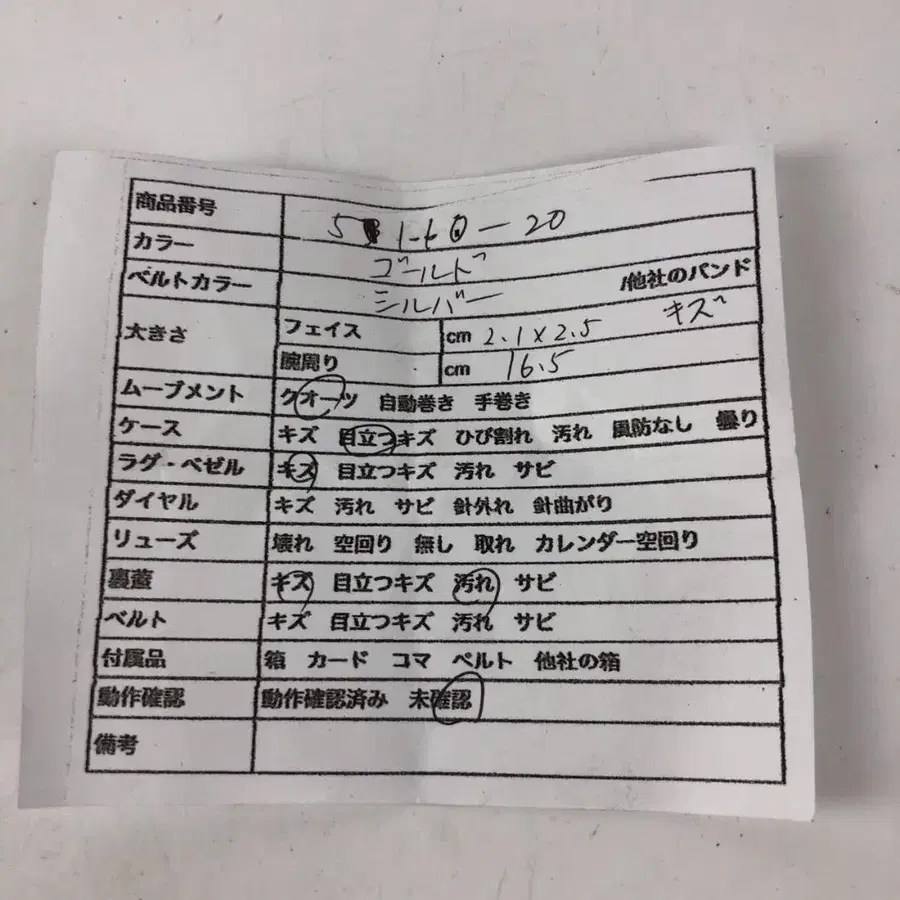 商品番号 5 1-60-20
カラー ゴールド
ベルトカラー シルバー /他社のバンド
大きさ フェイス cm 2.1×2.5 キズ
腕周り cm 16.5
ムーブメント クオーツ 自動巻き 手巻き
ケース キズ 目立つキズ ひび割れ 汚れ 風防なし 曇り
ラグ・ベゼル キズ 目立つキズ 汚れ サビ
ダイヤル キズ 汚れ サビ 針外れ 針曲がり
リューズ 壊れ 空回り 無し 取れ カレンダー空回り
裏蓋 キズ 目立つキズ 汚れ サビ
ベルト キズ 目立つキズ 汚れ サビ
付属品 箱 カード コマ ベルト 他社の箱
動作確認 動作確認済み 未確認
備考